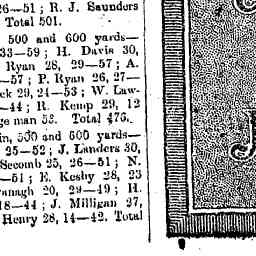 26—51; R. J. Saunders
Total 501.
500 and 600 yards—
33—59; H. Davis 30,
Ryan 28, 29—57; A.
—57; P. Ryan 26, 27—
ck 29, 24—53; W. Law-
—44; R. Kemp 29, 12
ge man 53. Total 476.
in, 500 and 600 yards—
25—52; J. Landers 30,
Secomb 25, 26—51; N.
—51; E. Kesby 28, 23
vanagh 20, 29—49; H.
18—44; J. Milligan 27,
Henry 28, 14—42. Total